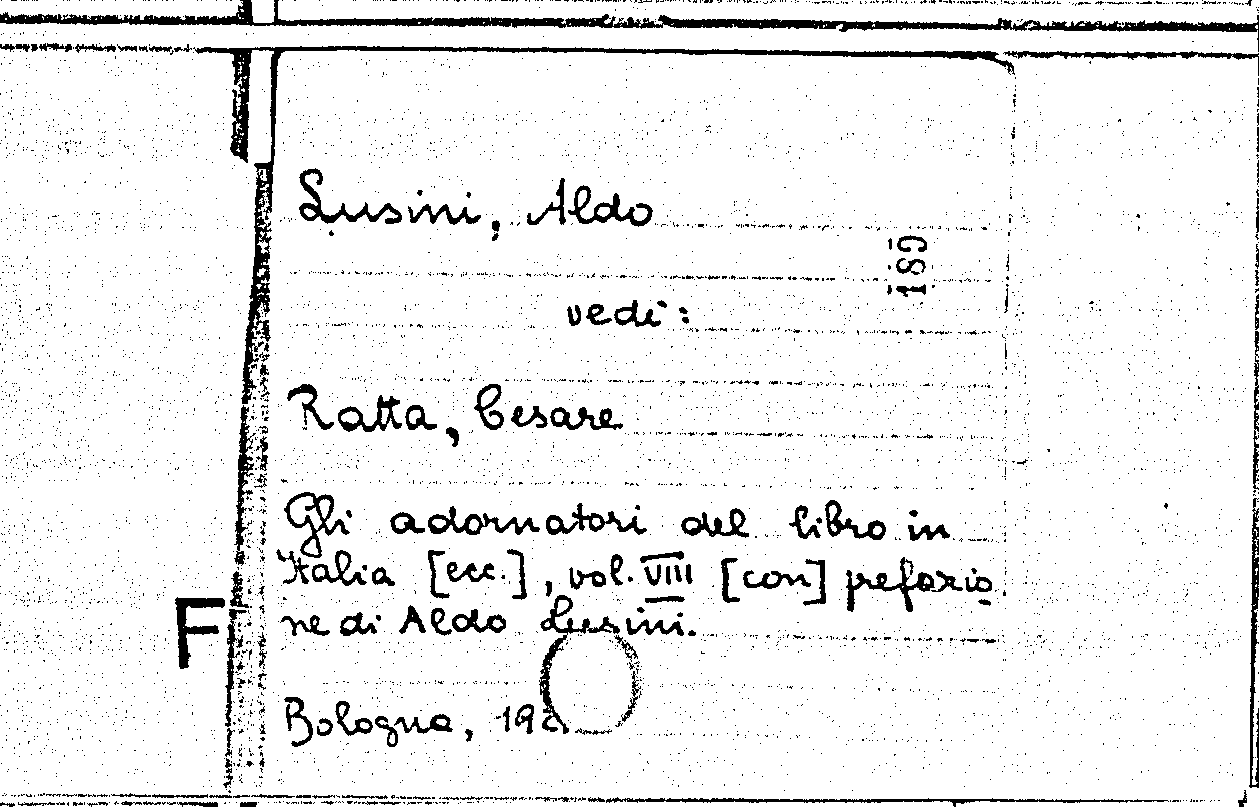 Lusini, Aldo
189
vedi:
Ratta, Cesare
Gli adornatori del libro in
Italia [ecc.], vol. VIII [con] prefazio
ne di Aldo Lusini.
F
Bologna,